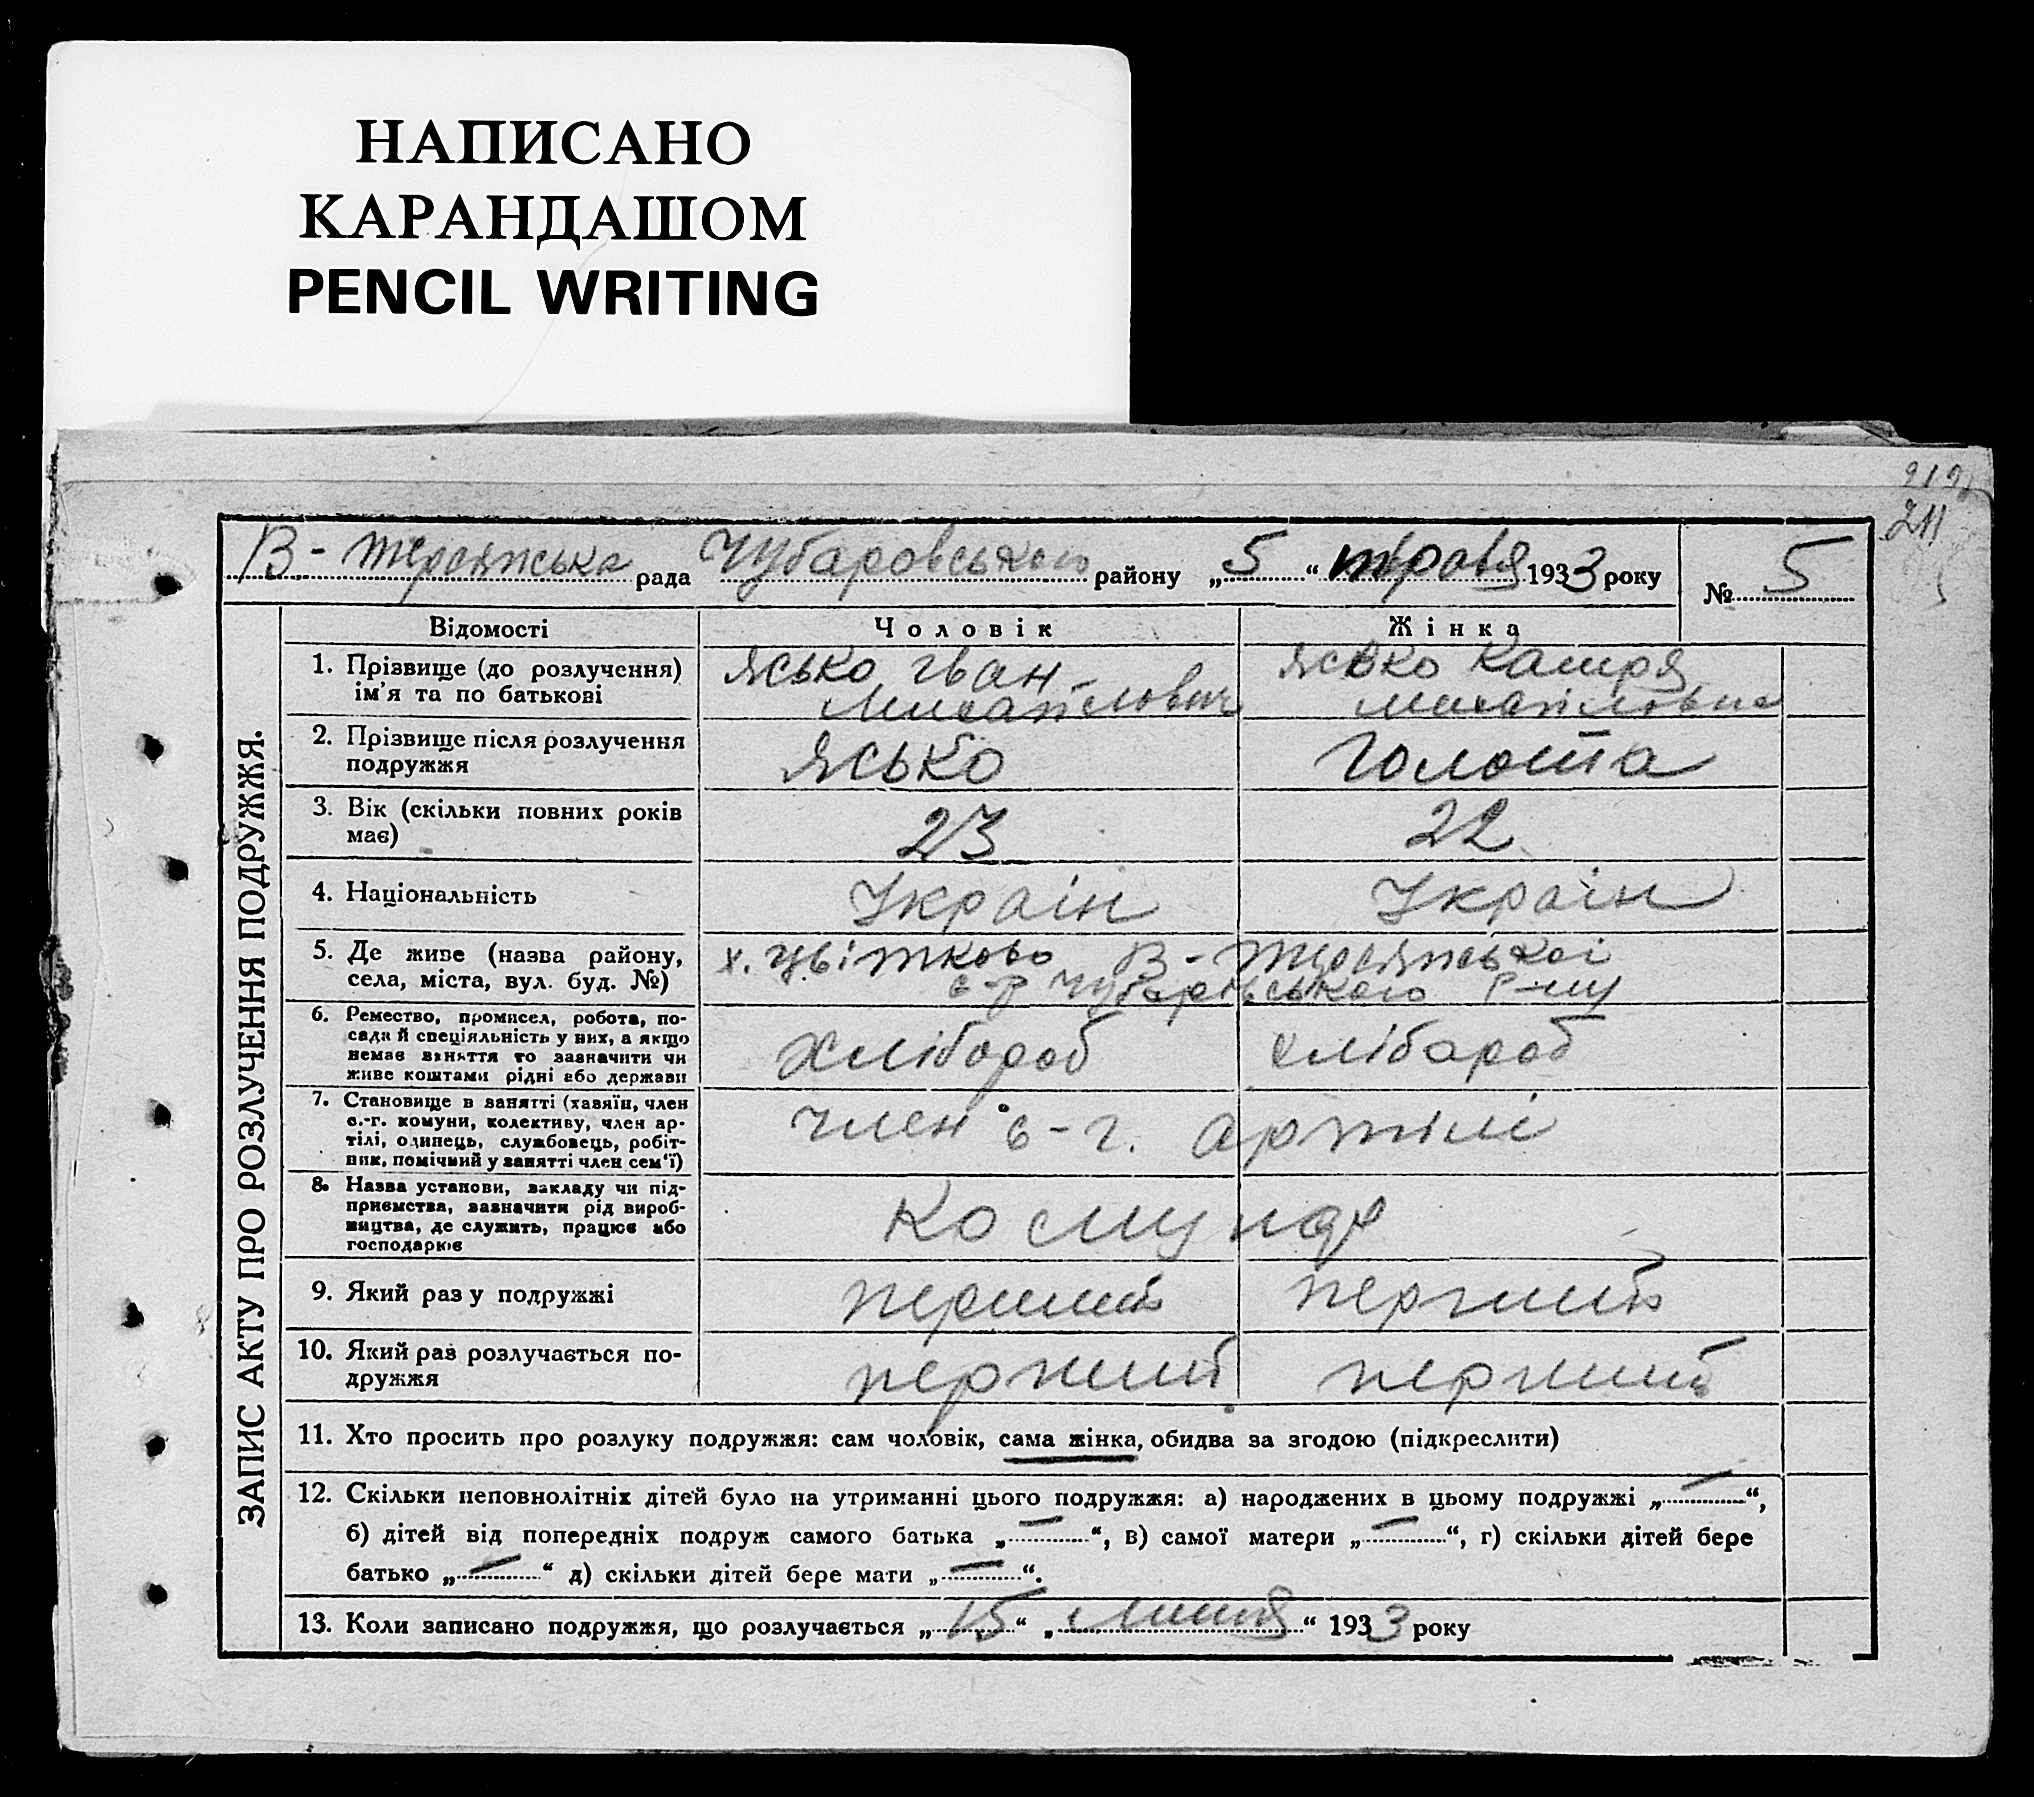 НАПИСАНО
КАРАНДАШОМ
PENCIL WRITING
219
211
В-Терсянська рада Чубаровського району „5“ травня 1933 року № 5
ЗАПИС АКТУ ПРО РОЗЛУЧЕННЯ ПОДРУЖЖЯ.
Відомості Чоловік Жінка
1. Прізвище (до розлучення) Ясько Іван Ясько
ім'я та по батькові Михайлович Михайловна
2. Прізвище після розлучення
подружжя Ясько Голота
3. Вік (скільки повних років
має) 23 22
4. Національність Україн Україн
5. Де живе (назва району, х. Цвітково В-Терсянської
села, міста, вул. буд. №) с-р Чубарівського р-ну
6. Ремество, промисел, робота, по-
сада й спеціяльність у них, а якщо
немає заняття то зазначити чи
живе коштами рідні або держави
Хлібороб хлібароб
7. Становище в занятті (хазяїн, член
с.-г. комуни, колективу, член ар-
тілі, одинець, службовець, робіт-
ник, помічний у занятті член сем'ї)
член с-г. артілі
8. Назва установи, закладу чи під-
приємства, зазначити рід вироб-
ництва, де служить, працює або
господарює
9. Який раз у подружжі перший перший
10. Який раз розлучається по-
дружжя перший перший
11. Хто просить про розлуку подружжя: сам чоловік, сама жінка, обидва за згодою (підкреслити)
12. Скільки неповнолітніх дітей було на утриманні цього подружжя: а) народжених в цьому подружжі „—“,
б) дітей від попередніх подруж самого батька „—“, в) самої матери „—“, г) скільки дітей бере
батько „—“ д) скільки дітей бере мати „—“.
13. Коли записано подружжя, що розлучається „15“ „липня“ 1933 року